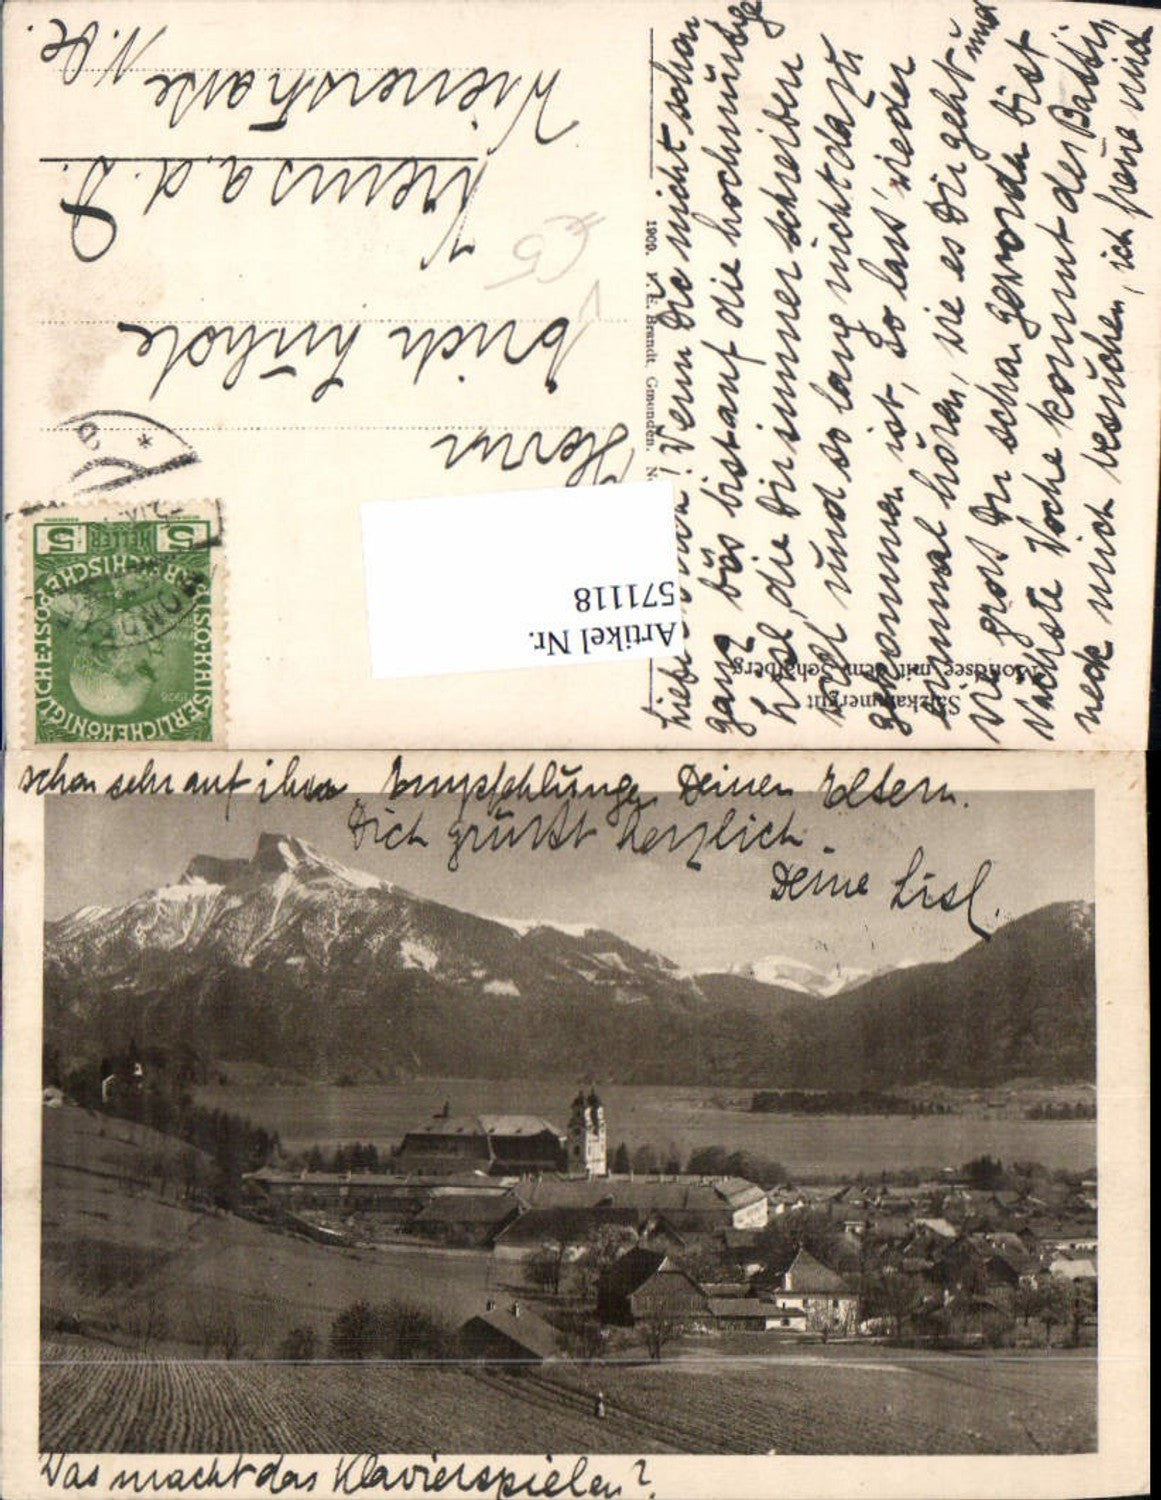 Herrn
Erich
Krems a. d. D.
Wienerstrasse N.Oe.
ÖSTERREICHISCHE POST
KAISERLICHEKÖNIGLICHE
5 HELLER 5
1908
MONDSEE
Artikel Nr.
571118
1909. V. E. Brandt, Gmunden.
Salzkammergut
Mondsee mit dem Schafberg.
Wenn Du nicht schon
ganz bös bist auf die hochmütige
Lisl, die Dir immer schreiben
will und so lang nicht dazu
gekommen ist, so lass' wieder
einmal hören, wie es Dir geht und
wie gross Du schon geworden bist
Nächste Woche kommt der
mich besuchen, ich freue mich
schon sehr auf ihn. Empfehlungen Deinen Eltern.
Dich grüsst herzlich
Deine Lisl.
Was macht das Klavierspielen?